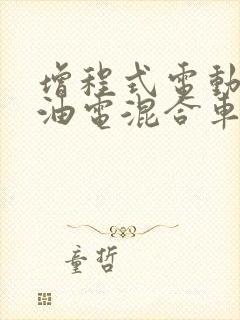 增程式電動
油電混合車
童哲